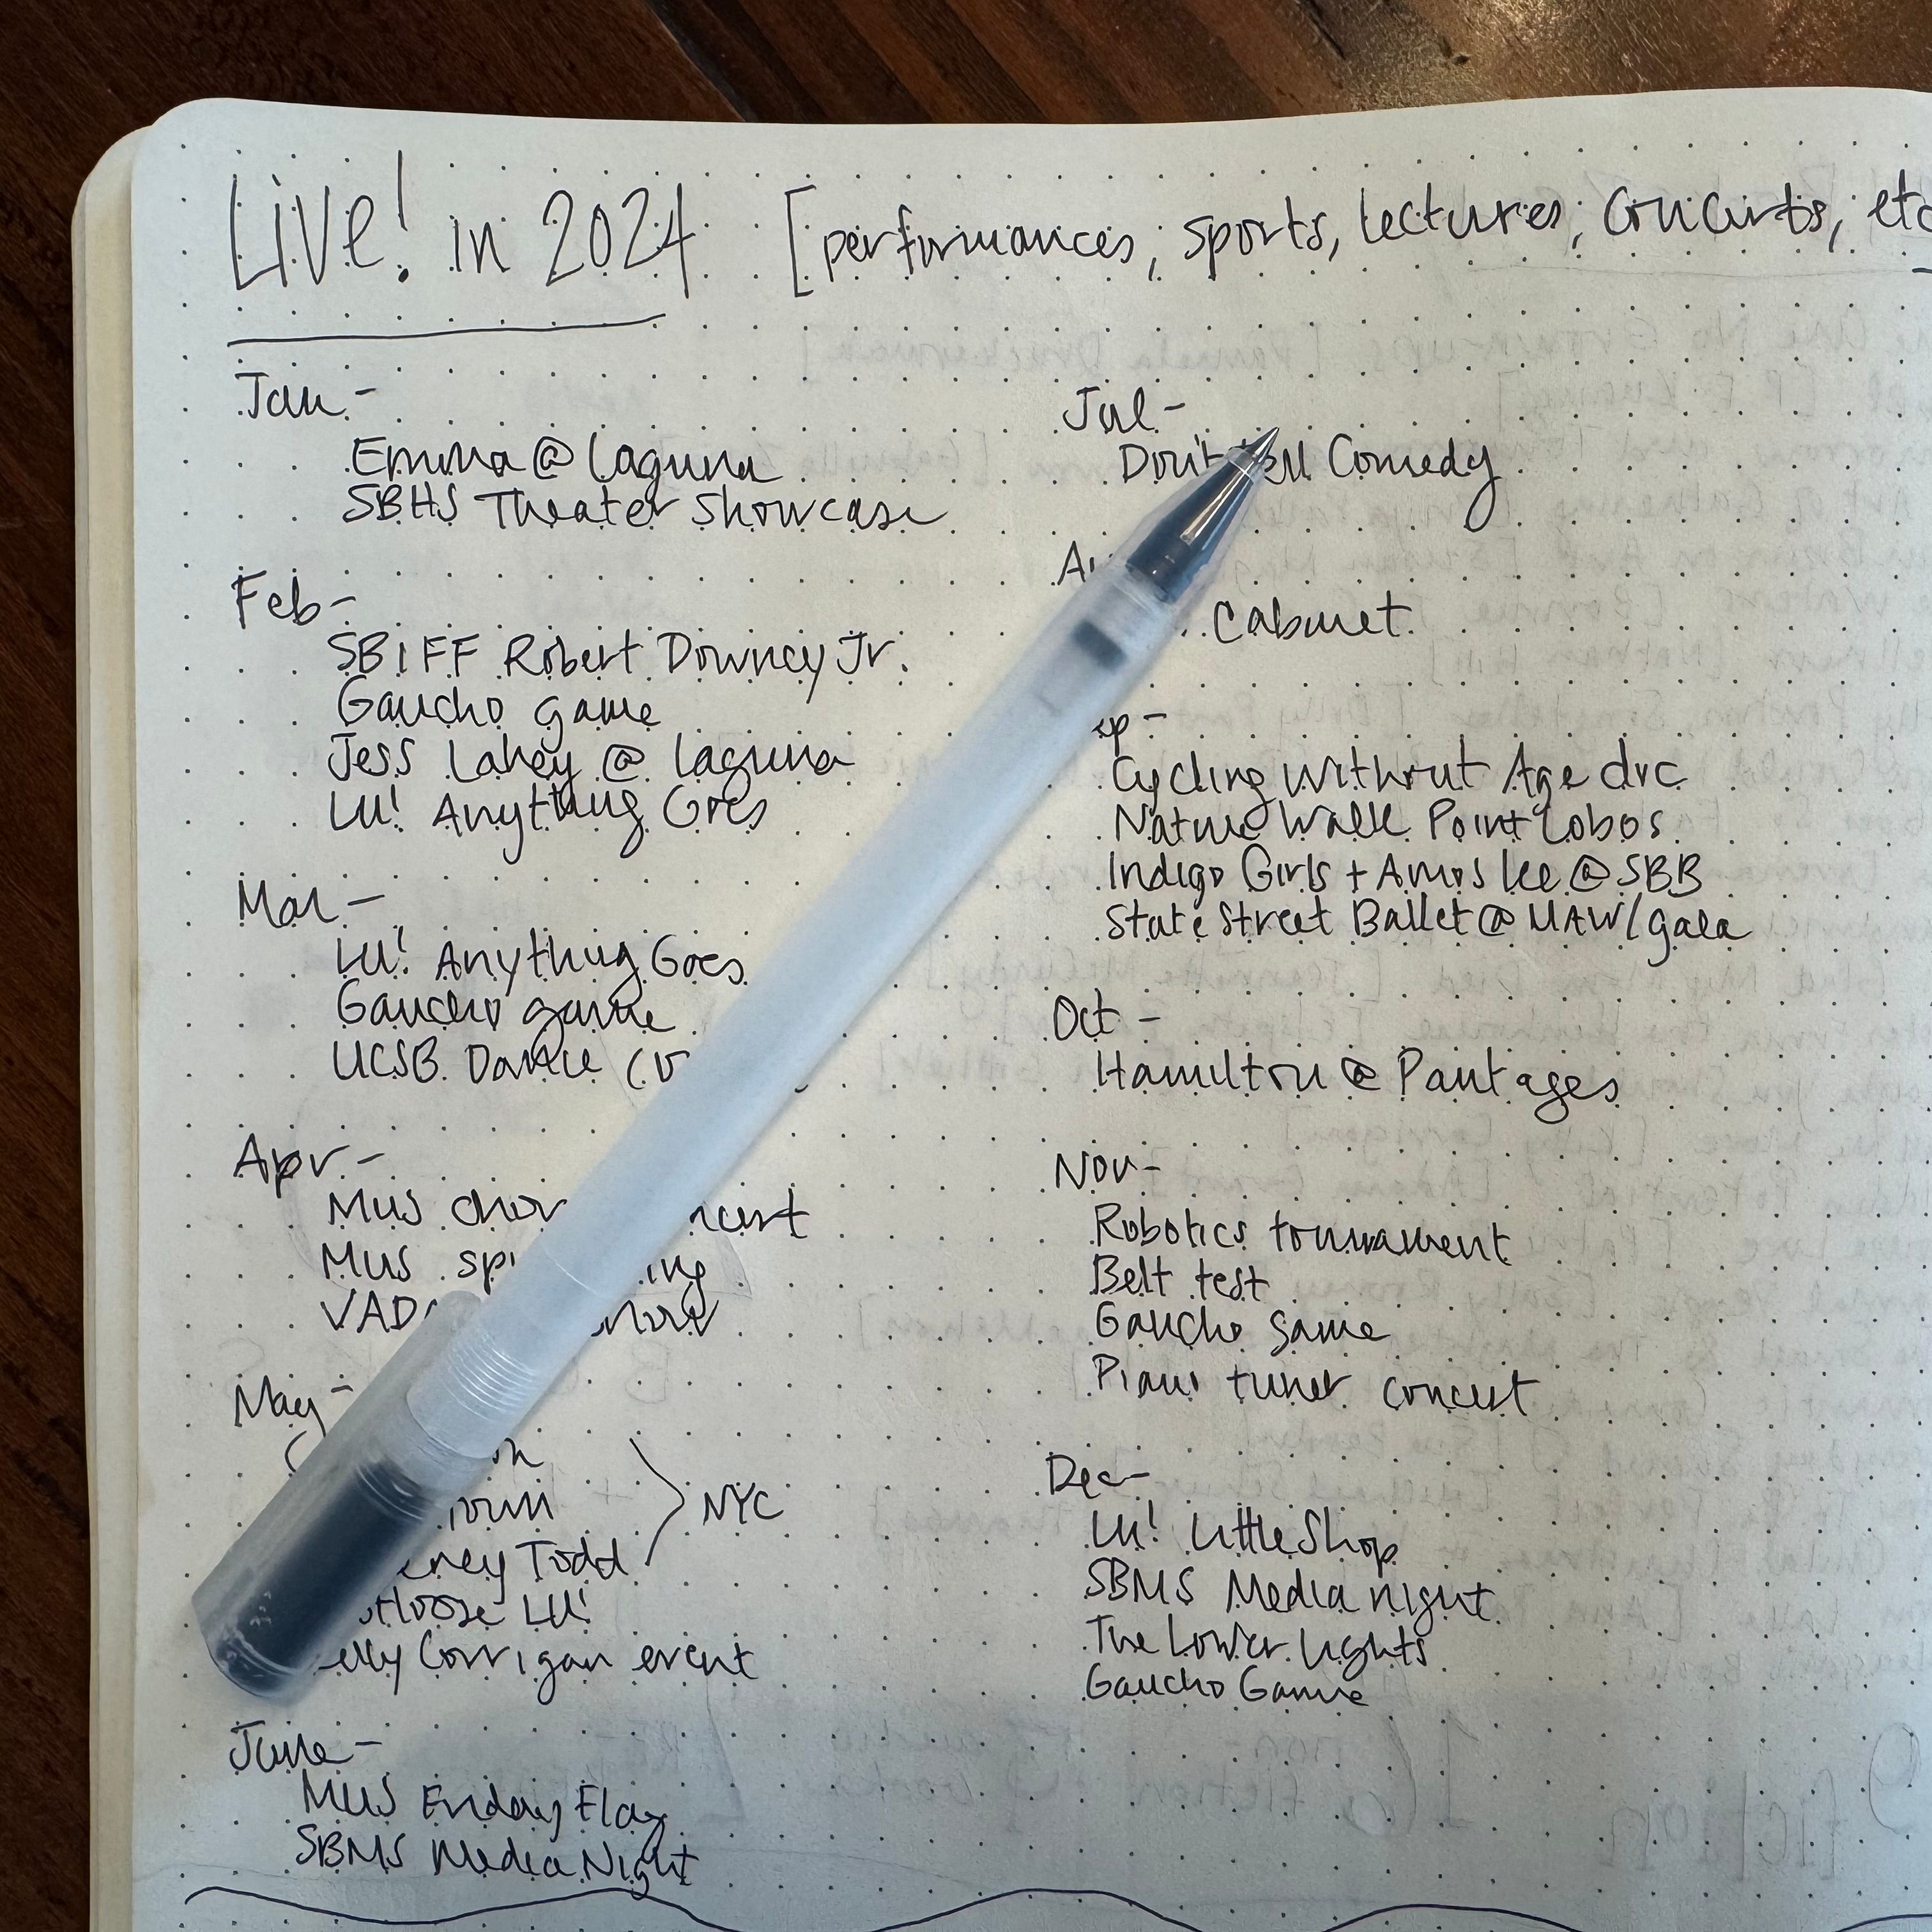 Live! in 2024 [performances, sports, lectures, concerts, etc
Jan-
Emma @ Laguna
SBHS Theater Showcase
Feb-
SBIFF Robert Downey Jr.
Gaucho game
Jess Lahey @ Laguna
LU! Anything Goes
Mar-
LU! Anything Goes
Gaucho game
UCSB Dance
Apr-
MUS
MUS
May-
NYC
Todd
LU!
Corrigan event
June-
MUS Friday Flag
SBMS Media Night
Jul-
Comedy
Cabinet
Cycling Without Age
Nature Walk Point Lobos
Indigo Girls + Amos Lee @ SBB
State Street Ballet @ UAW/gala
Oct-
Hamilton @ Pantages
Nov-
Robotics tournament
Belt test
Gaucho game
Piano tuner concert
Dec-
LU! Little Shop
SBMS Media night
The Lower Lights
Gaucho Game